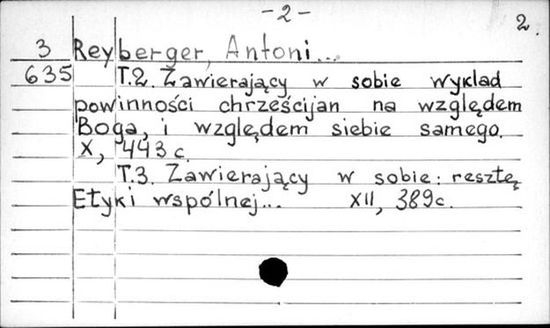 -2-
2.
3 Reyberger, Antoni...
635 T.2. Zawierający w sobie wykład
powinności chrześcijan na względem
Boga, i względem siebie samego.
X, 443 c.
T.3. Zawierający w sobie: resztę
Etyki wspólnej... XII, 389c.